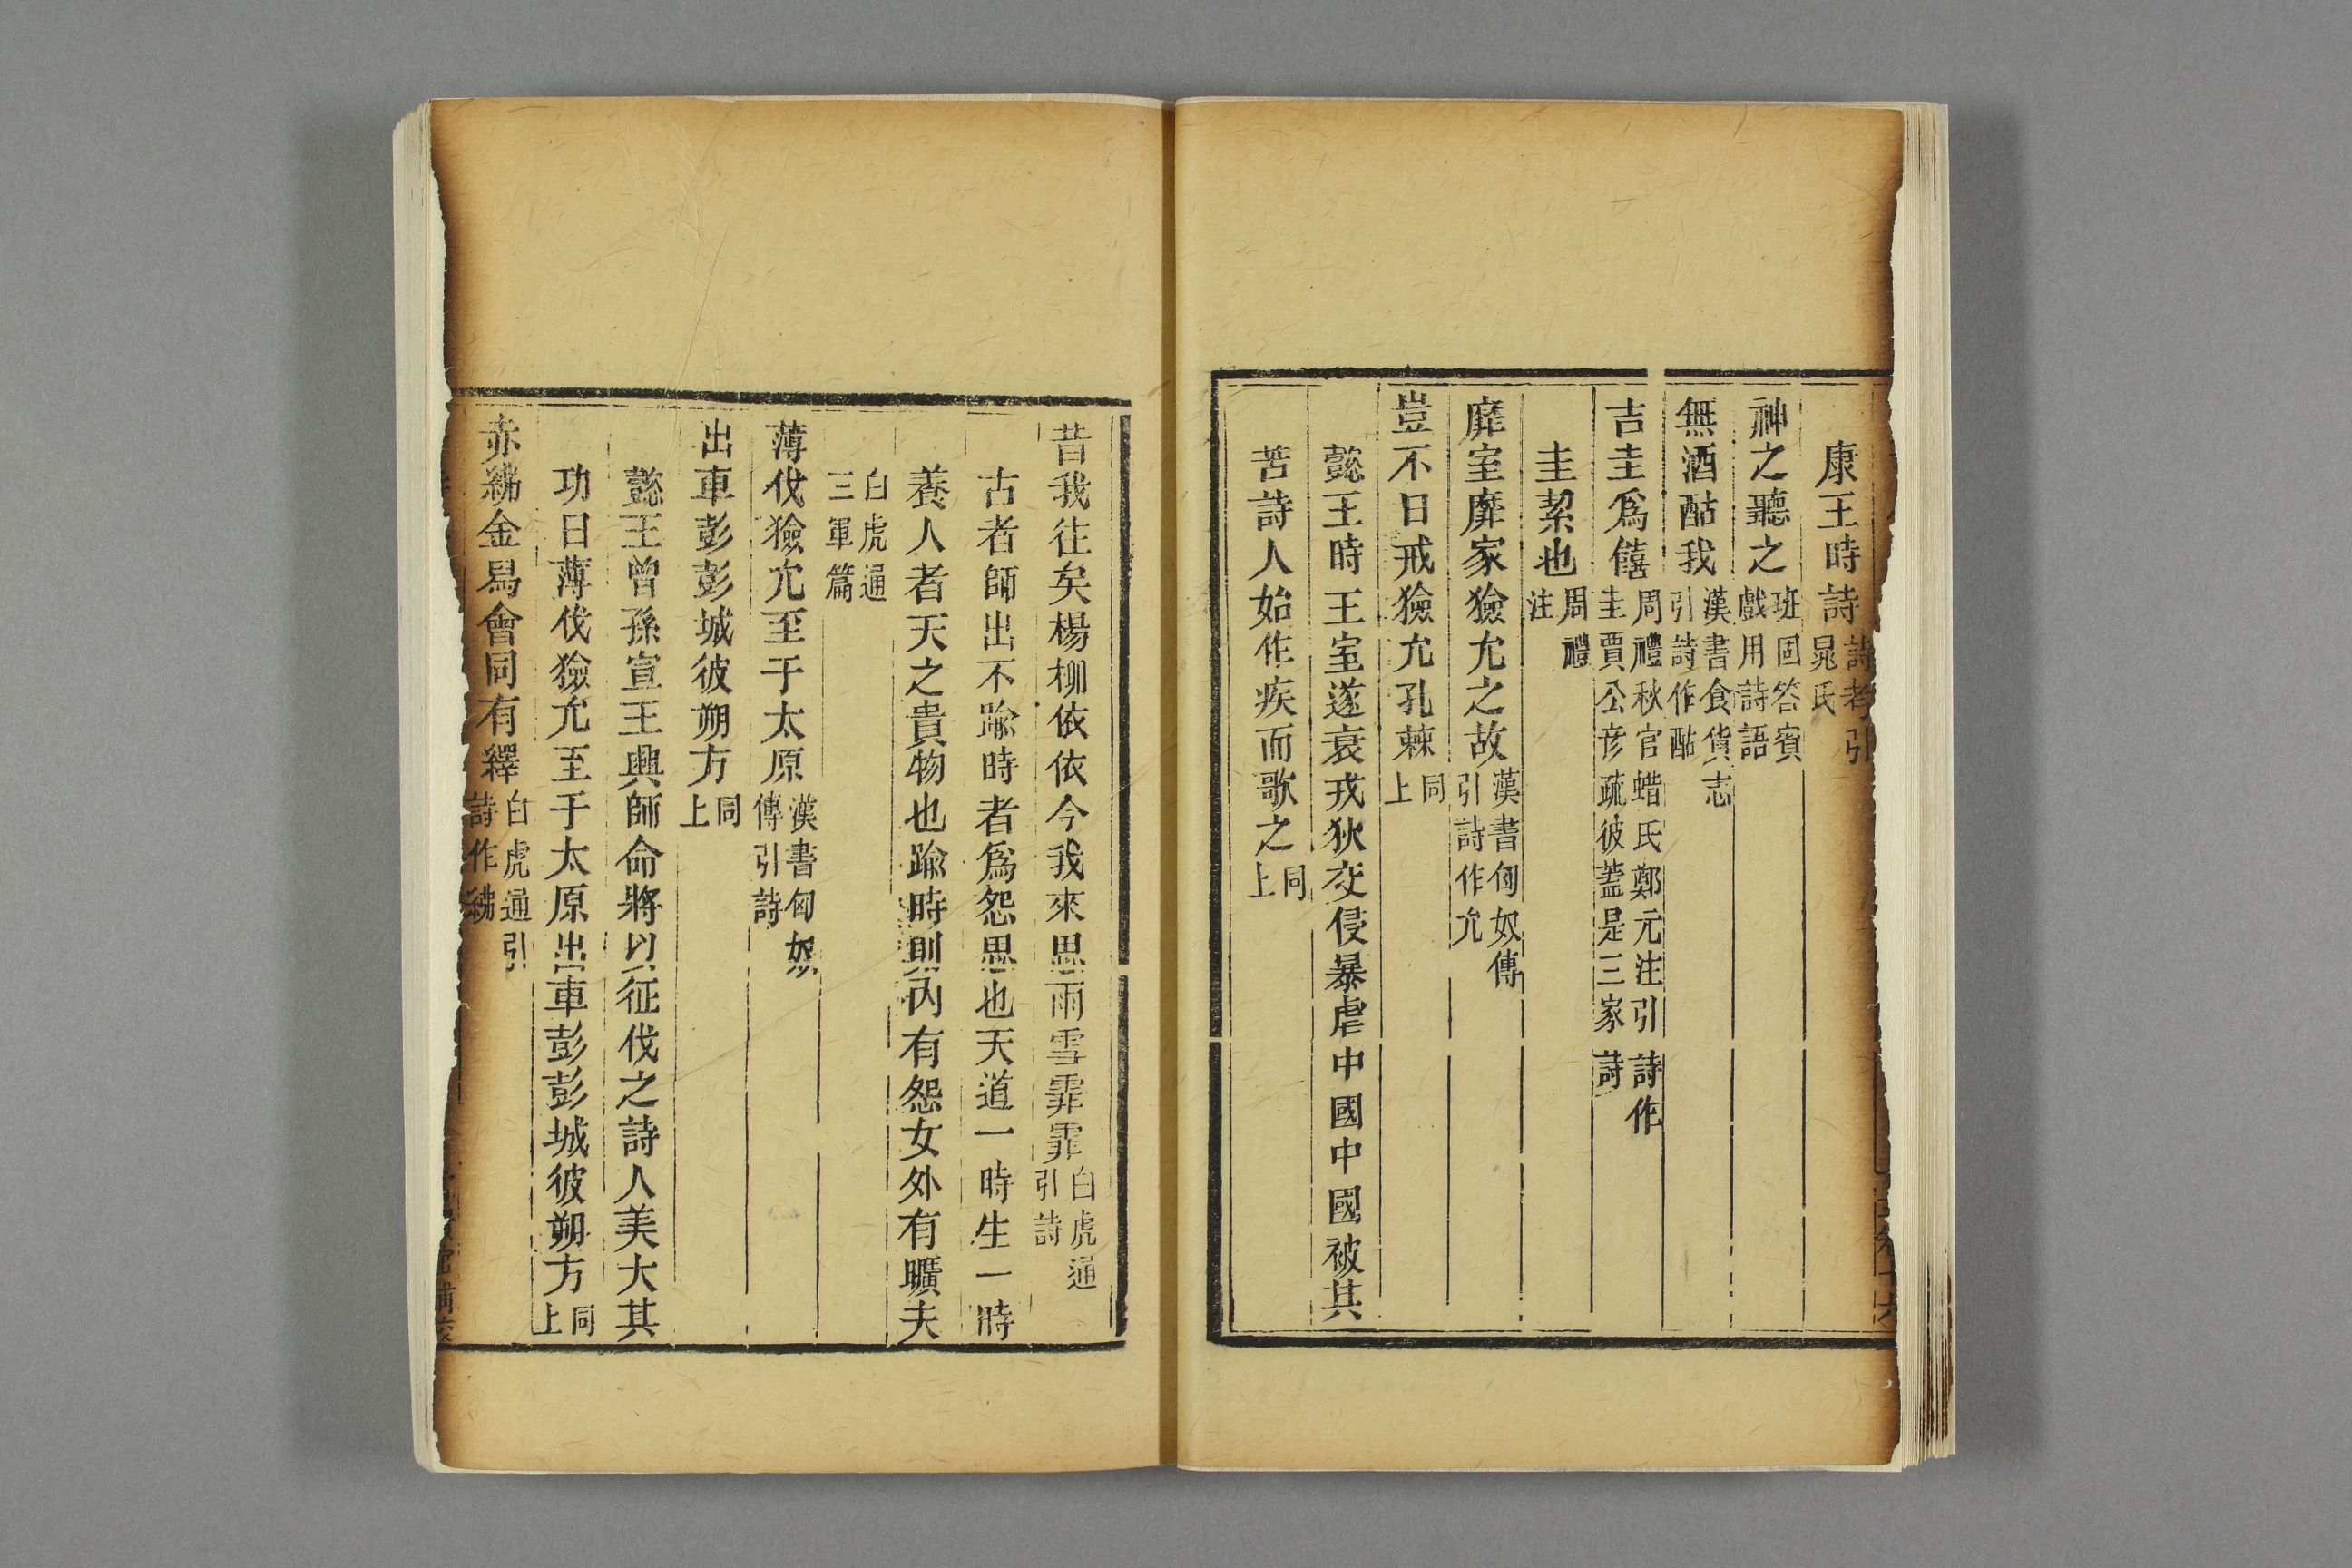 康王時詩詩考引晁氏
神之聽之班固答賓戲用詩語
無酒酤我漢書食貨志引詩作酤
吉圭爲饎周禮秋官蜡氏鄭元注引詩作圭賈公彥疏彼蓋是三家詩
圭絜也周禮注
靡室靡家獫允之故漢書匈奴傳引詩作允
豈不日戒獫允孔棘同上
懿王時王室遂衰戎狄交侵暴虐中國中國被其
苦詩人始作疾而歌之同上
昔我往矣楊柳依依今我來思雨雪霏霏白虎通引詩
古者師出不踰時者爲怨思也天道一時生一時
養人者天之貴物也踰時則內有怨女外有曠夫
白虎通三軍篇
薄伐獫允至于太原漢書匈奴傳引詩
出車彭彭城彼朔方同上
懿王曾孫宣王興師命將以征伐之詩人美大其
功曰薄伐獫允至于太原出車彭彭城彼朔方同上
赤紼金舄會同有繹白虎通引詩作紼